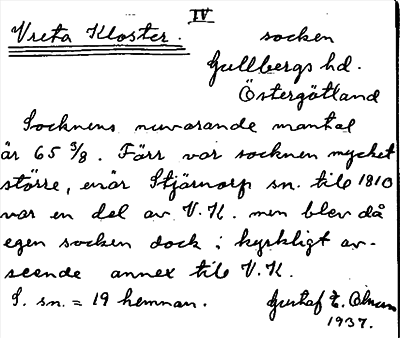 IV
Vreta Kloster. socken
Gullbergs hd.
Östergötland
Socknens nuvarande mantal
är 65 3/8. Förr var socknen mycket
större, enär Stjärnorp sn. till 1810
var en del av V.K. men blev då
egen socken dock i kyrkligt av-
seende annex till V.K.
S. sn. = 19 hemman. Gustaf E.
1937.